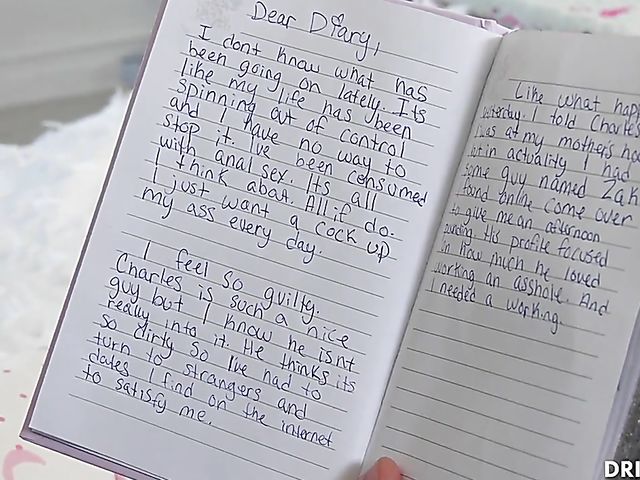 Dear Diary,
I dont know what has
been going on lately. Its
like my life has been
spinning out of control
and I have no way to
stop it. I've been censumed
with anal sex. Its all
I think abat. All if do.
I just want a cock up
my ass every day.
I feel so guilty.
Charles is such a nice
guy but I know he isnt
really into it. He thinks its
so dirty so I've had to
turn to strangers and
dates I find on the internet
to satisfy me.
Like what happ
yesterday. I told Charle
I was at my mother's ho
but in actuality I had
some guy named Zah
found online come over
to give me an afternoon
pounding. His profile focused
on how much he loved
working an asshole. And
I needed a working.
DRI